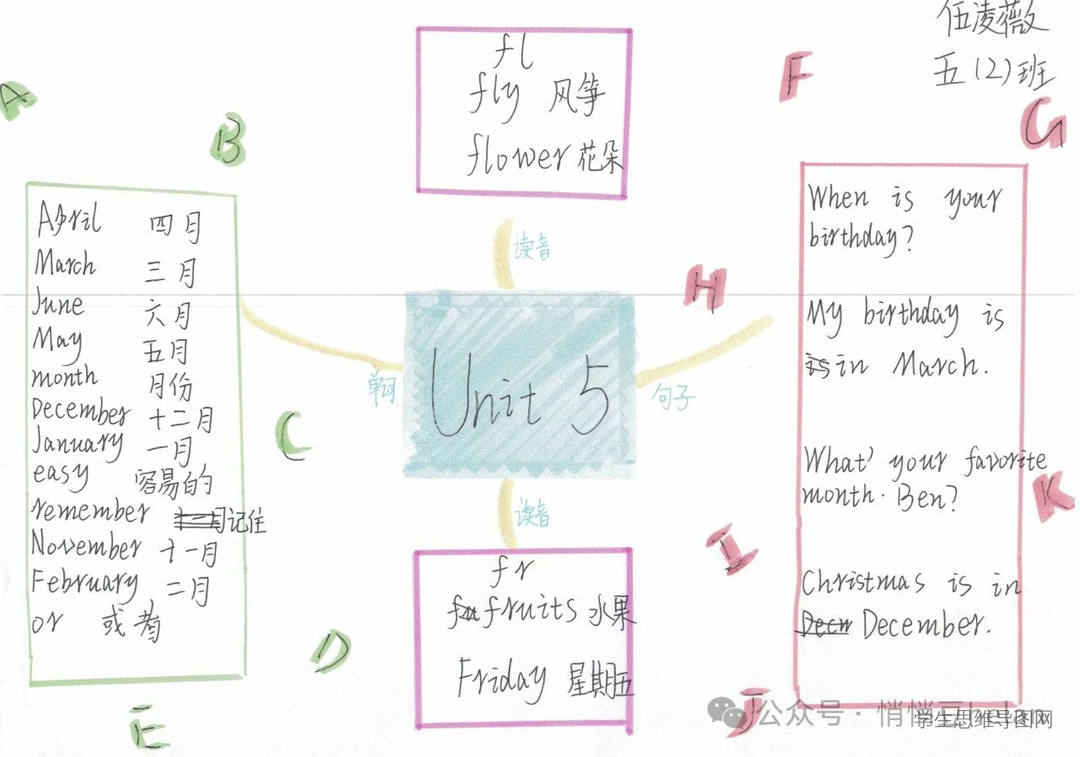 伍凌薇
五(2)班
A
B
C
D
E
F
G
H
I
J
K
fl
fly 风筝
flower 花朵
读音
April 四月
March 三月
June 六月
May 五月
month 月份
December 十二月
January 一月
easy 容易的
remember 记住
November 十一月
February 二月
or 或者
单词
Unit 5
句子
When is your
birthday?
My birthday is
in March.
What' your favorite
month. Ben?
Christmas is in
December.
读音
fr
fruits 水果
Friday 星期五
公众号·悄悄豆
学生思维导图网